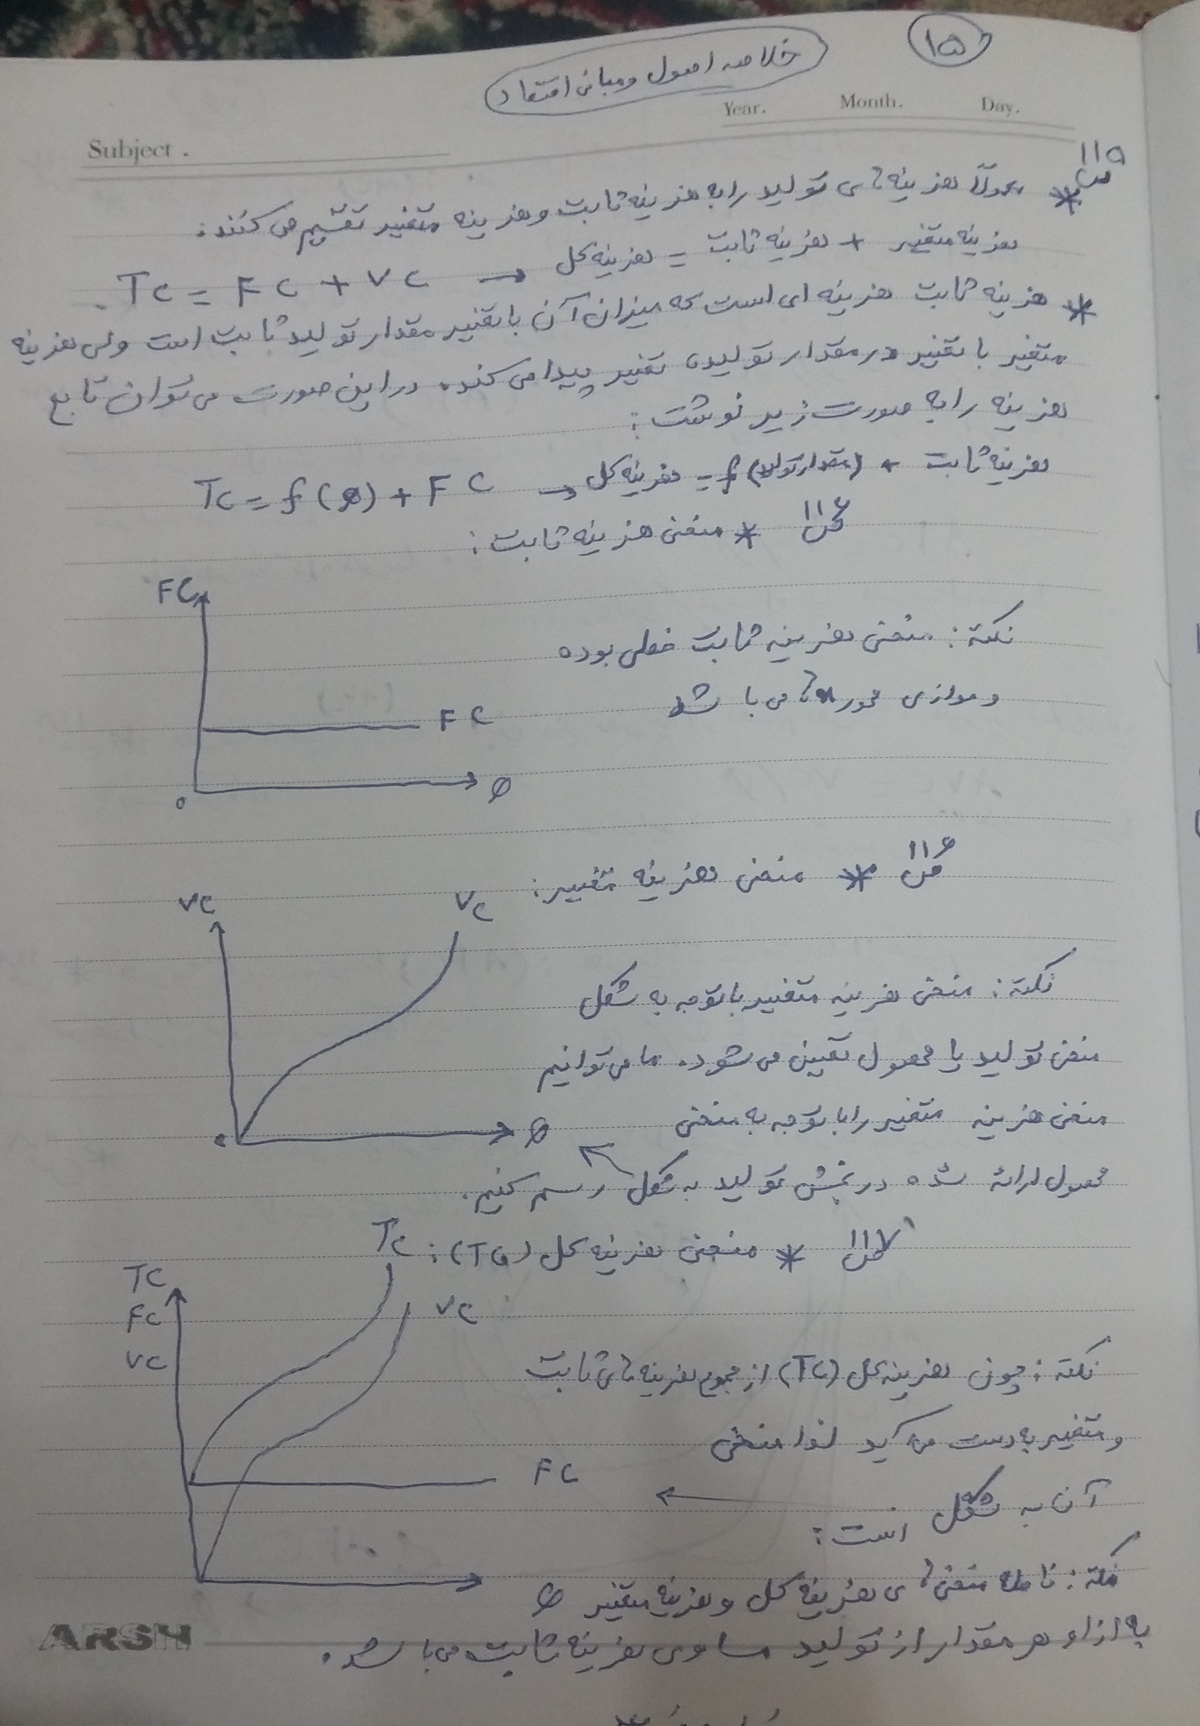 ۱۵
خلاصه اصول و مبانی اقتصاد
Year. Month. Day.
Subject .
ص ۱۱۵
* معمولاً هزینه های تولید را به هزینه ثابت و هزینه متغیر تقسیم می کنند:
هزینه متغیر + هزینه ثابت = هزینه کل → TC = FC + VC.
* هزینه ثابت هزینه ای است که میزان آن با تغییر مقدار تولید ثابت است ولی هزینه
متغیر با تغییر در مقدار تولید، تغییر پیدا می کند. در این صورت می توان تابع
هزینه را به صورت زیر نوشت:
هزینه ثابت + (مقدار تولید) f = هزینه کل → TC = f(Q) + FC
ص ۱۱۶ * منحنی هزینه ثابت:
FC
نکته: منحنی هزینه ثابت خطی بوده
و موازی محور xها می باشد
FC
0 Q
ص ۱۱۶ * منحنی هزینه متغییر:
VC VC
نکته: منحنی هزینه متغییر با توجه به شکل
منحنی تولید یا محصول تعیین می شود. ما می توانیم
منحنی هزینه متغییر را با توجه به منحنی
0 Q
محصول ارائه شده در بخش تولید به شکل ↖ رسم کنیم.
ص ۱۱۷ * منحنی هزینه کل (TC):
TC
TC
FC
VC
VC
نکته: چون هزینه کل (TC) از مجموع هزینه های ثابت
و متغییر به دست می آید لذا منحنی
FC
آن به شکل ← است:
نکته: فاصله منحنی های هزینه کل و هزینه متغییر
Q
به ازاء هر مقدار از تولید مساوی هزینه ثابت می باشد.
ARSH